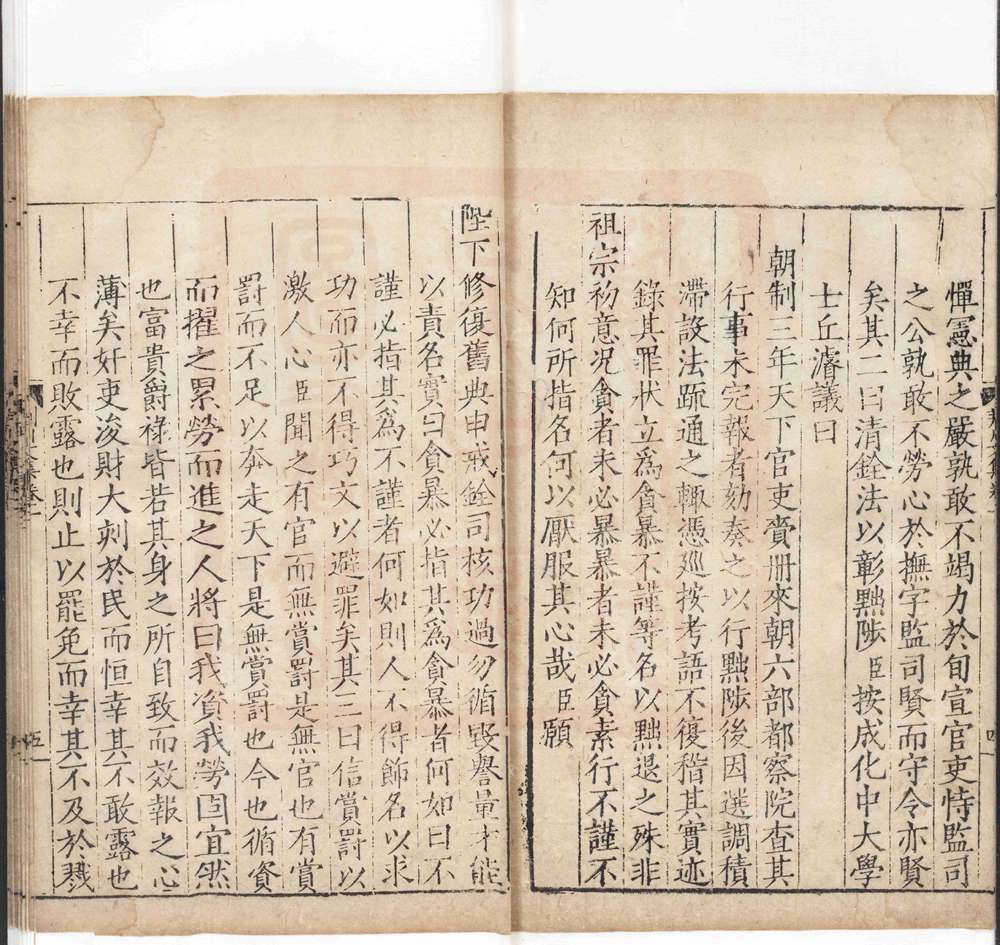 憚憲典之嚴孰敢不竭力於旬宣官吏恃監司
之公孰敢不勞心於撫字監司賢而守令亦賢
矣其二曰清銓法以彰黜陟臣按成化中大學
士丘濬議曰
朝制三年天下官吏賫册來朝六部都察院查其
行事未完報者劾奏之以行黜陟後因選調積
滯設法疏通之輙憑廵按考語不復稽其實迹
錄其罪狀立爲貪暴不謹等名以黜退之殊非
祖宗初意況貪者未必暴暴者未必貪素行不謹不
知何所指名何以厭服其心哉臣願
陛下修復舊典申戒銓司核功過勿循毀譽量才能
以責名實曰貪暴必指其爲貪暴者何如曰不
謹必指其爲不謹者何如則人不得飾名以求
功而亦不得巧文以避罪矣其三曰信賞罰以
激人心臣聞之有官而無賞罰是無官也有賞
罰而不足以奔走天下是無賞罰也今也循資
而擢之累勞而進之人將曰我資我勞固宜然
也富貴爵祿皆若其身之所自致而效報之心
薄矣奸吏浚財大刻於民而恒幸其不敢露也
不幸而敗露也則止以罷免而幸其不及於戮
四
五